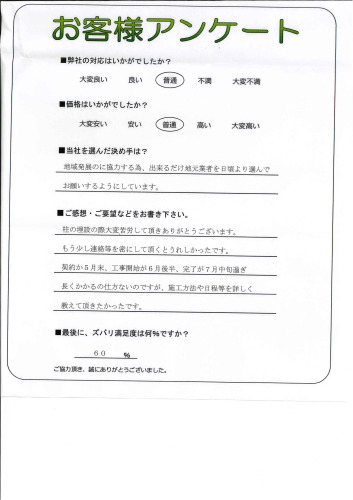 お客様アンケート
■弊社の対応はいかがでしたか?
大変良い 良い 普通 不満 大変不満
■価格はいかがでしたか?
大変安い 安い 普通 高い 大変高い
■当社を選んだ決め手は?
地域発展のに協力する為、出来るだけ地元業者を日頃より選んで
お願いするようにしています。
■ご感想・ご要望などをお書き下さい。
柱の埋設の際大変苦労して頂きありがとうございます。
もう少し連絡等を密にして頂くとうれしかったです。
契約か5月末、工事開始が6月後半、完了が7月中旬過ぎ
長くかかるの仕方ないのですが、施工方法や日程等を詳しく
教えて頂きたかったです。
■最後に、ズバリ満足度は何%ですか?
60 %
ご協力頂き、誠にありがとうございました。